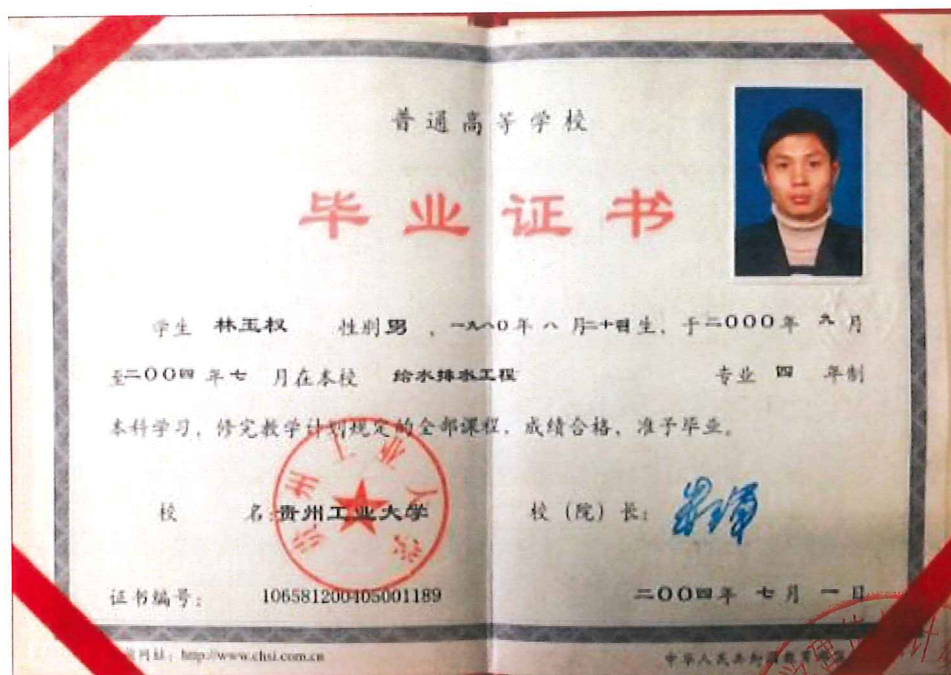 普通高等学校
毕业证书
学生 林玉权 性别 男 ，一九八〇年 八 月二十日生，于二〇〇〇年 九 月
至二〇〇四 年七 月在本校 给水排水工程 专业 四 年制
本科学习，修完教学计划规定的全部课程，成绩合格，准予毕业。
校 名：贵州工业大学 校（院）长：
证书编号： 106581200405001189 二〇〇四年 七月 一日
网址：http://www.chsi.com.cn 中华人民共和国教育部